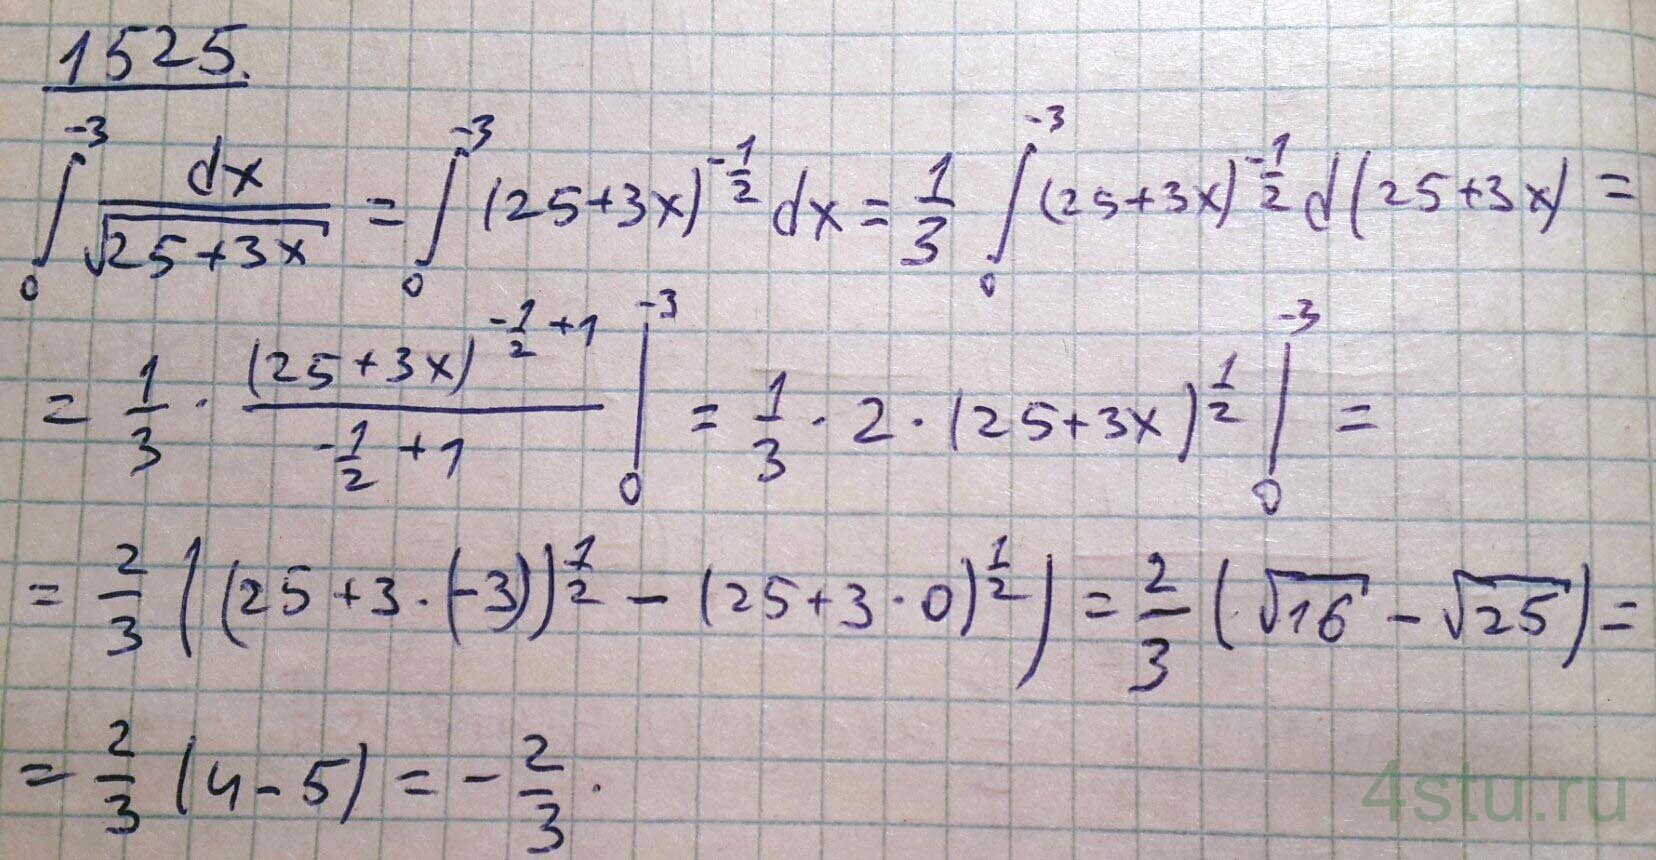 1525.
∫₀⁻³ dx/√(25+3x) = ∫₀⁻³ (25+3x)^(-1/2) dx = 1/3 ∫₀⁻³ (25+3x)^(-1/2) d(25+3x) =
= 1/3 · (25+3x)^(-1/2+1)/(-1/2+1) |₀⁻³ = 1/3 · 2 · (25+3x)^(1/2) |₀⁻³ =
= 2/3 ((25+3·(-3))^(1/2) - (25+3·0)^(1/2)) = 2/3 (√16 - √25) =
= 2/3 (4-5) = -2/3.
4stu.ru